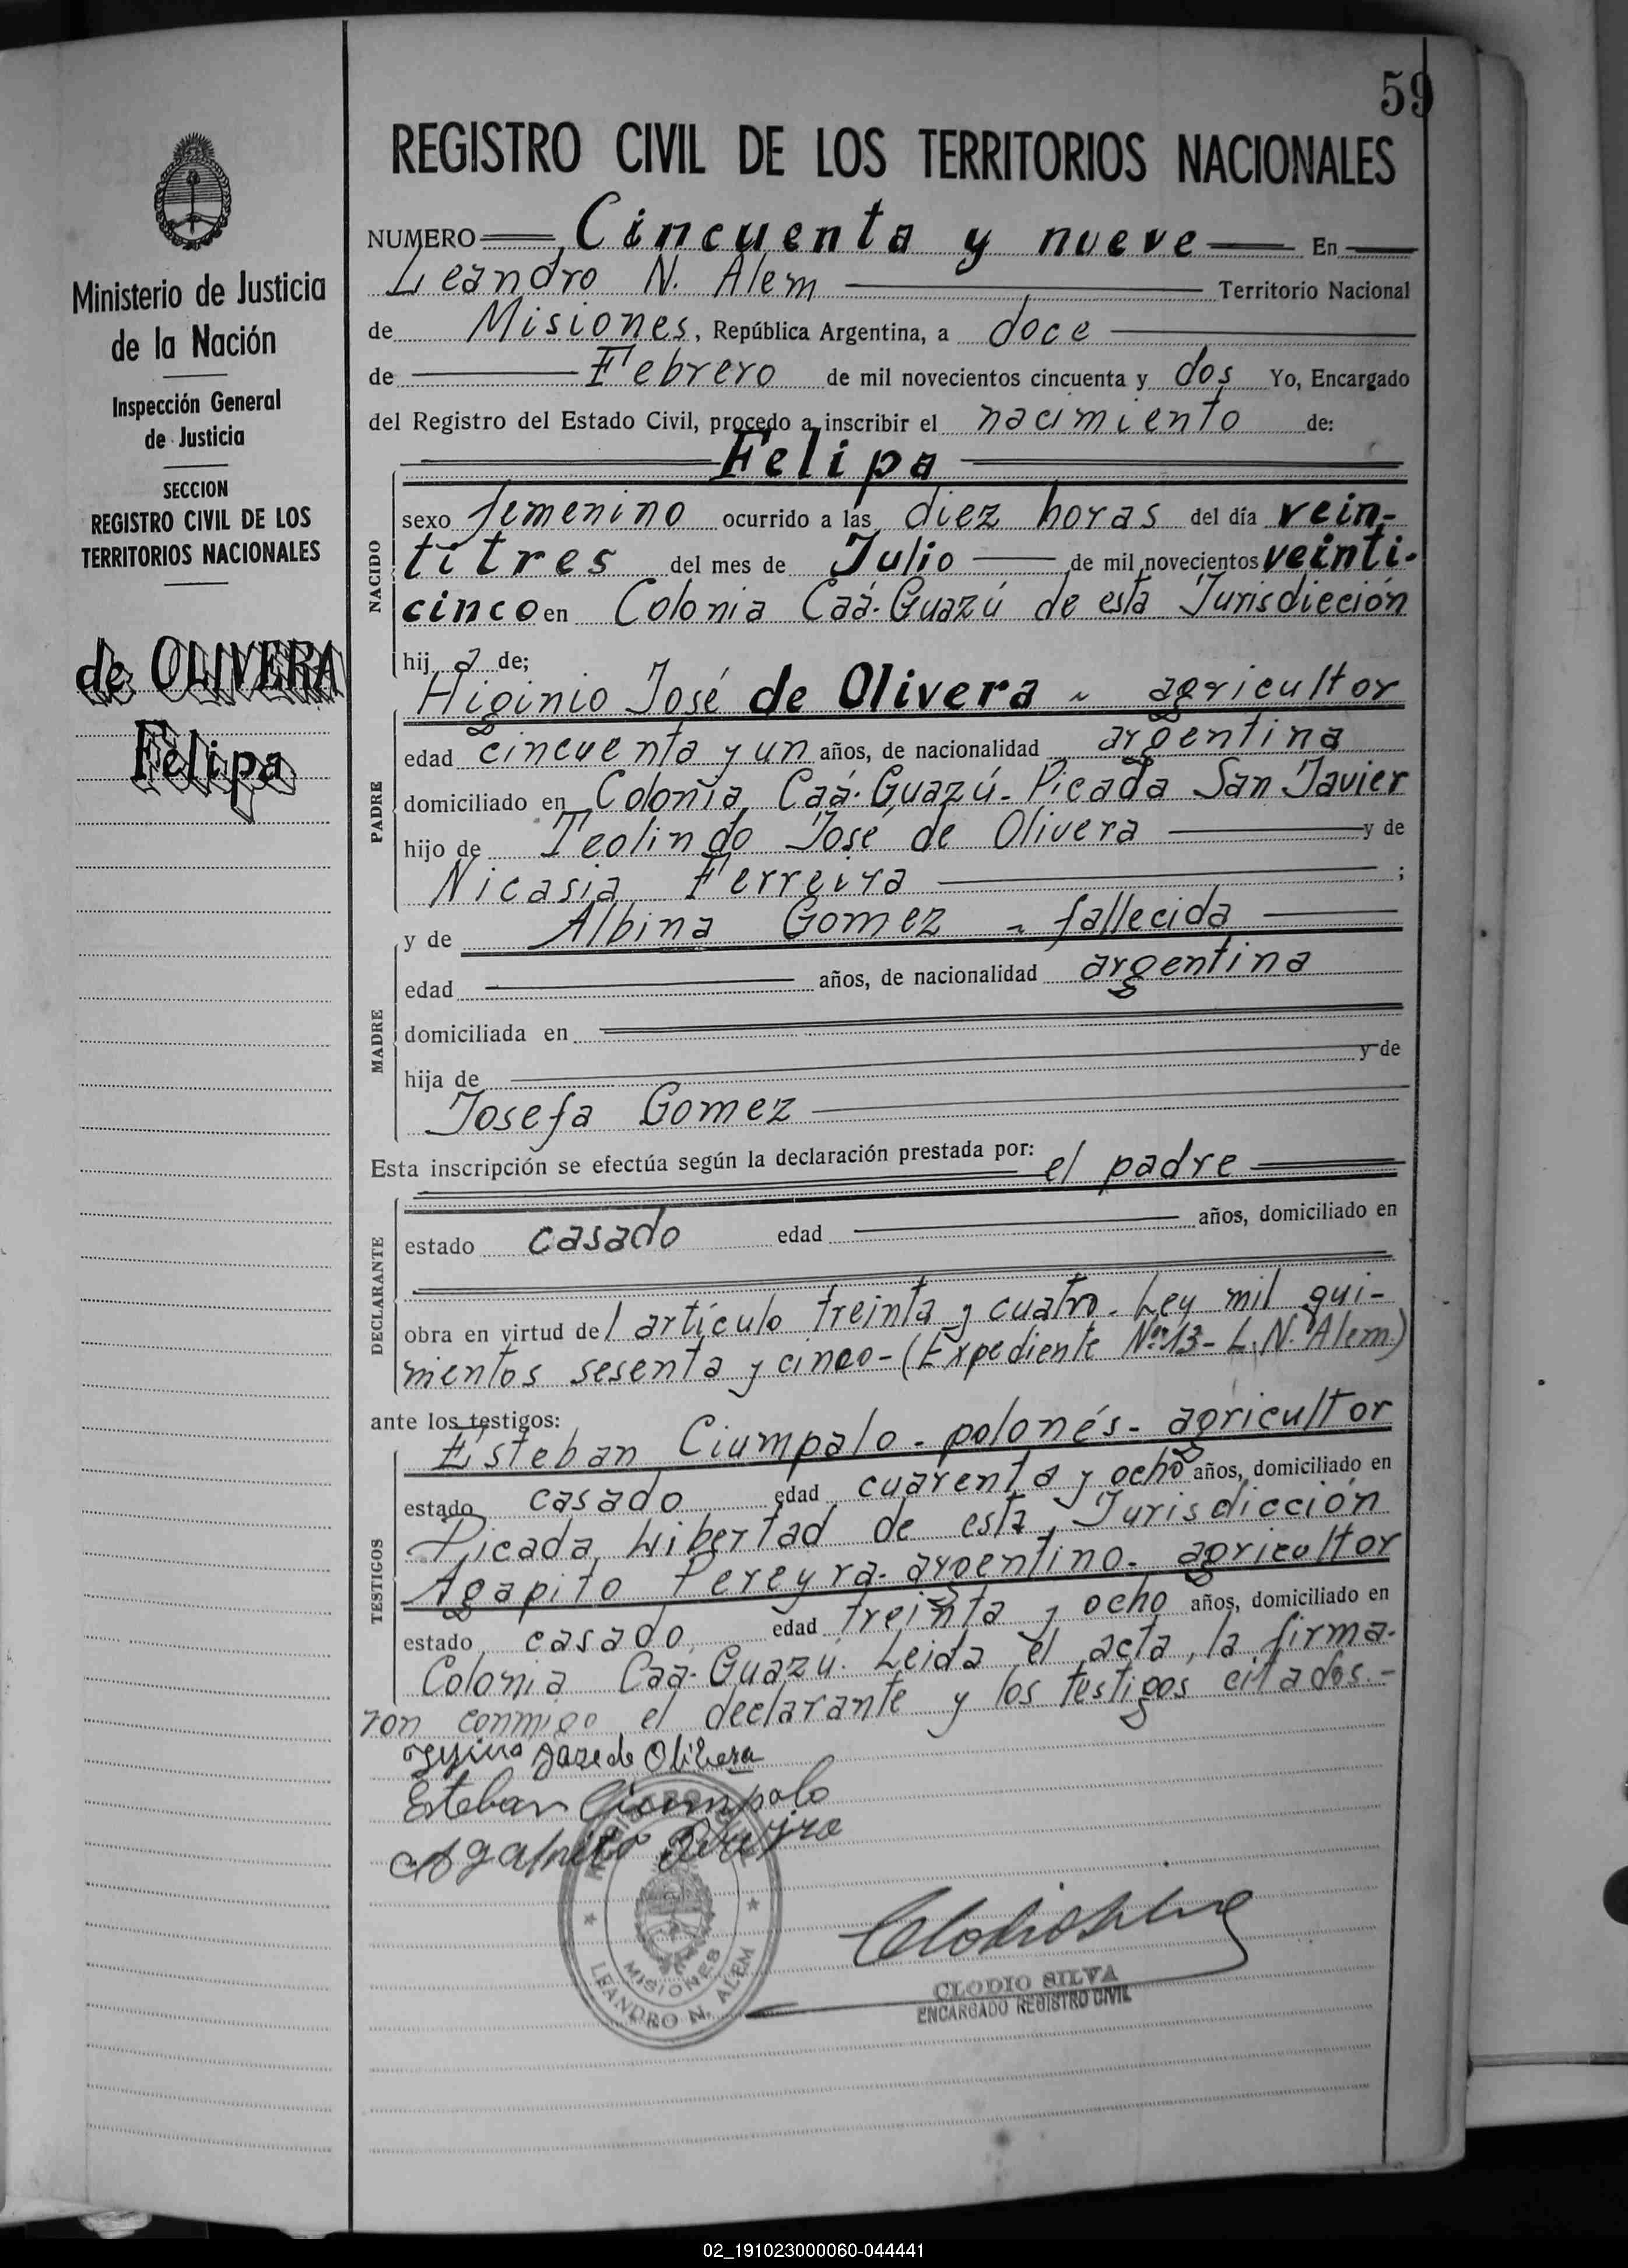 59
REGISTRO CIVIL DE LOS TERRITORIOS NACIONALES
Ministerio de Justicia
de la Nación
Inspección General
de Justicia
SECCION
REGISTRO CIVIL DE LOS
TERRITORIOS NACIONALES
de OLIVERA
Felipa
NUMERO Cincuenta y nueve En
Leandro N. Alem Territorio Nacional
de Misiones, República Argentina, a doce
de Febrero de mil novecientos cincuenta y dos Yo, Encargado
del Registro del Estado Civil, procedo a inscribir el nacimiento de:
Felipa
NACIDO
sexo femenino ocurrido a las diez horas del día vein-
titres del mes de Julio de mil novecientos veinti-
cinco en Colonia Caá-Guazú de esta Jurisdicción
hija de;
PADRE
Higinio José de Olivera - agricultor
edad cincuenta y un años, de nacionalidad argentina
domiciliado en Colonia Caá-Guazú-Picada San Javier
hijo de Teolindo José de Olivera y de
Nicasia Ferreira ;
MADRE
y de Albina Gomez - fallecida
edad años, de nacionalidad argentina
domiciliada en
hija de y de
Josefa Gomez
Esta inscripción se efectúa según la declaración prestada por: el padre
DECLARANTE
estado casado edad años, domiciliado en
obra en virtud del artículo treinta y cuatro - Ley mil qui-
nientos sesenta y cinco - (Expediente Nº 13 - L. N. Alem)
ante los testigos:
TESTIGOS
Esteban Ciumpalo - polonés - agricultor
estado casado edad cuarenta y ocho años, domiciliado en
Picada Libertad de esta Jurisdicción
Agapito Pereyra - argentino - agricultor
estado casado edad treinta y ocho años, domiciliado en
Colonia Caá-Guazú. Leida el acta, la firma-
ron conmigo el declarante y los testigos citados.-
Jose de Olibera
Esteban Ciumpalo
MISIONES
LEANDRO N. ALEM
CLODIO SILVA
ENCARGADO REGISTRO CIVIL
02_191023000060-044441